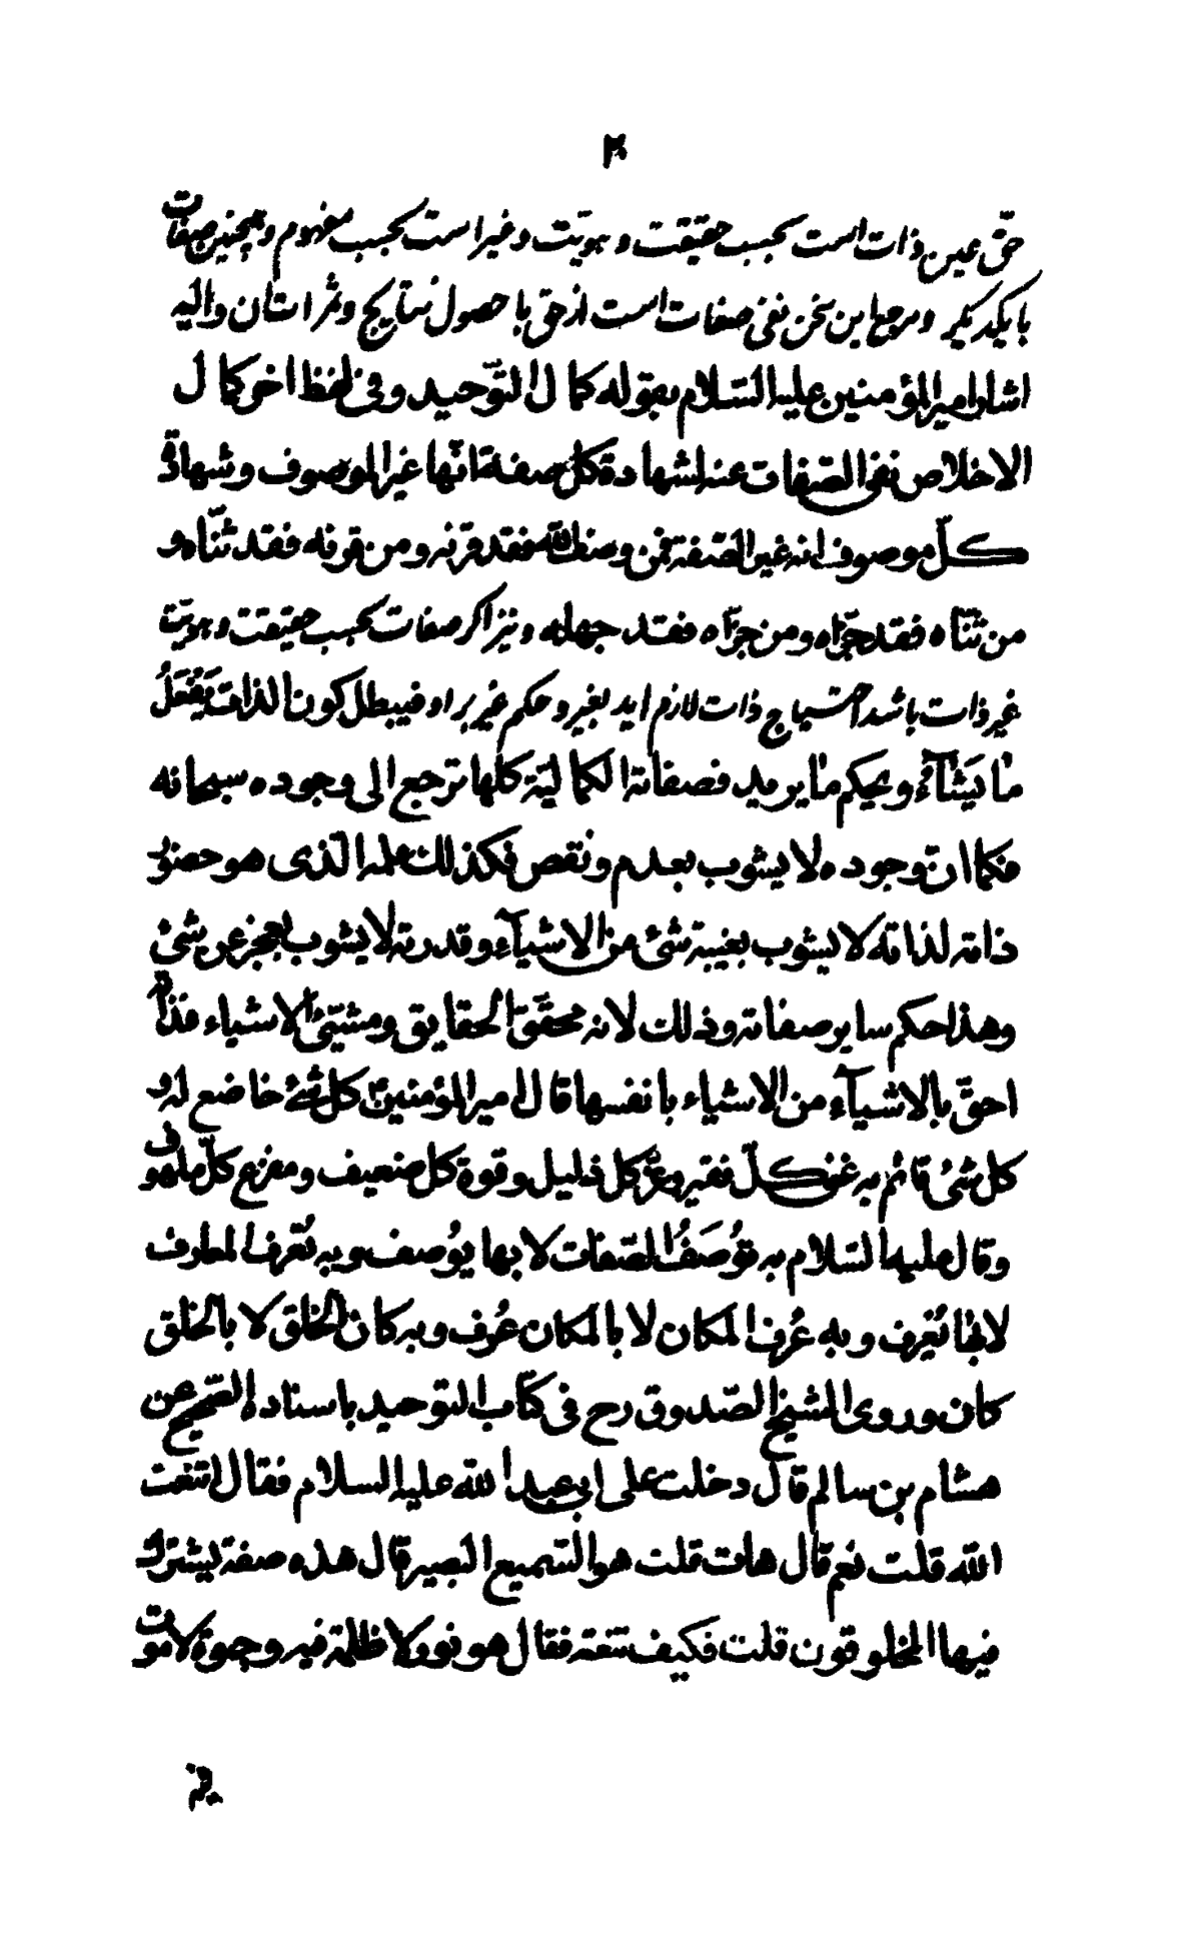 حق عین ذات است بحسب حقیقت و هویّت و غیر است بحسب مفهوم و همچنین صفات
با یکدیگر و مرجع این سخن نفی صفات است از حق با حصول نتایج و ثمرات ان و الیه
اشار امیر المؤمنین علیه السّلام بقوله کمال التّوحید و فی لفظ اخر کمال
الاخلاص نفی الصّفات عنه لشهادة کل صفة انّها غیر الموصوف و شهادة
کلّ موصوف انه غیر الصّفة فمن وصف اللّه فقد قرنه و من قرنه فقد ثنّاه و
من ثنّاه فقد جزّاه و من جزّاه فقد جهله و نیز اکر صفات بحسب حقیقت و هویّت
غیر ذات باشد احتیاج ذات لازم اید بغیر و حکم غیر بر او فیبطل کون الذات یَفْعَلُ
مٰا یَشٰآءُ و یحکم مٰا یرید فصفاته الکمالیّة کلّها ترجع الی وجوده سبحانه
فکما انّ وجوده لا یشوب بعدم و نقص فکذلك علمه الّذی هو حضور
ذاته لذاته لا یشوب بغیبة شئ من الاشیآء و قدرته لا یشوب بعجز عن شئ
و هذا حکم سایر صفاته و ذلك لانه محقّق الحقایق و مشیّئ الاشیاء فذاته
احقّ بالاشیآء من الاشیاء بانفسها قال امیر المؤمنین ع کل شئ خاضع له و
کل شئ قائم به غنی کلّ فقیر و عزّ کل ذلیل و قوة کل ضعیف و مفزع کلّ ملهوف
و قال علیه السّلام به تُوصَفُ الصّفات لا بها یُوصف و به تُعْرف المعارف
لا بها یُعْرف و به عُرف المکان لا بالمکان عُرف و به کان الخلق لا بالخلق
کان و روی الشیخ الصّدوق رح فی کتاب التوحید باسناده الصّحیح عن
هشام بن سالم قال دخلت علی ابی عبد اللّه علیه السلام فقال اتنعت
اللّه قلت نعم قال هات قلت هو السّمیع البصیر قال هذه صفة یشترك
فیها المخلوقون قلت فکیف تنعته فقال هو نور لا ظلمة فیه و حیوة لا موت
فیه